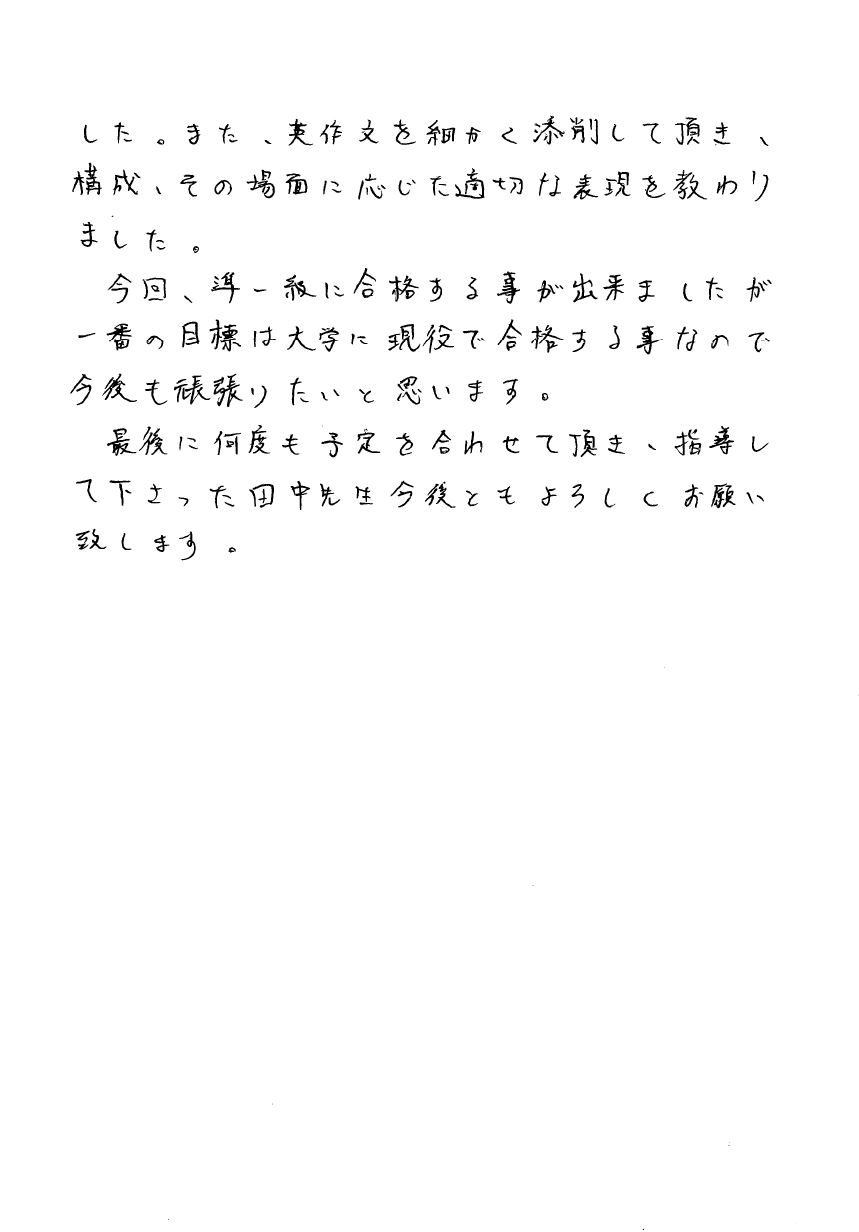 した。また、英作文を細かく添削して頂き、
構成、その場面に応じた適切な表現を教わり
ました。
今回、準一級に合格する事が出来ましたが
一番の目標は大学に現役で合格する事なので
今後も頑張りたいと思います。
最後に何度も予定を合わせて頂き、指導し
て下さった田中先生今後ともよろしくお願い
致します。